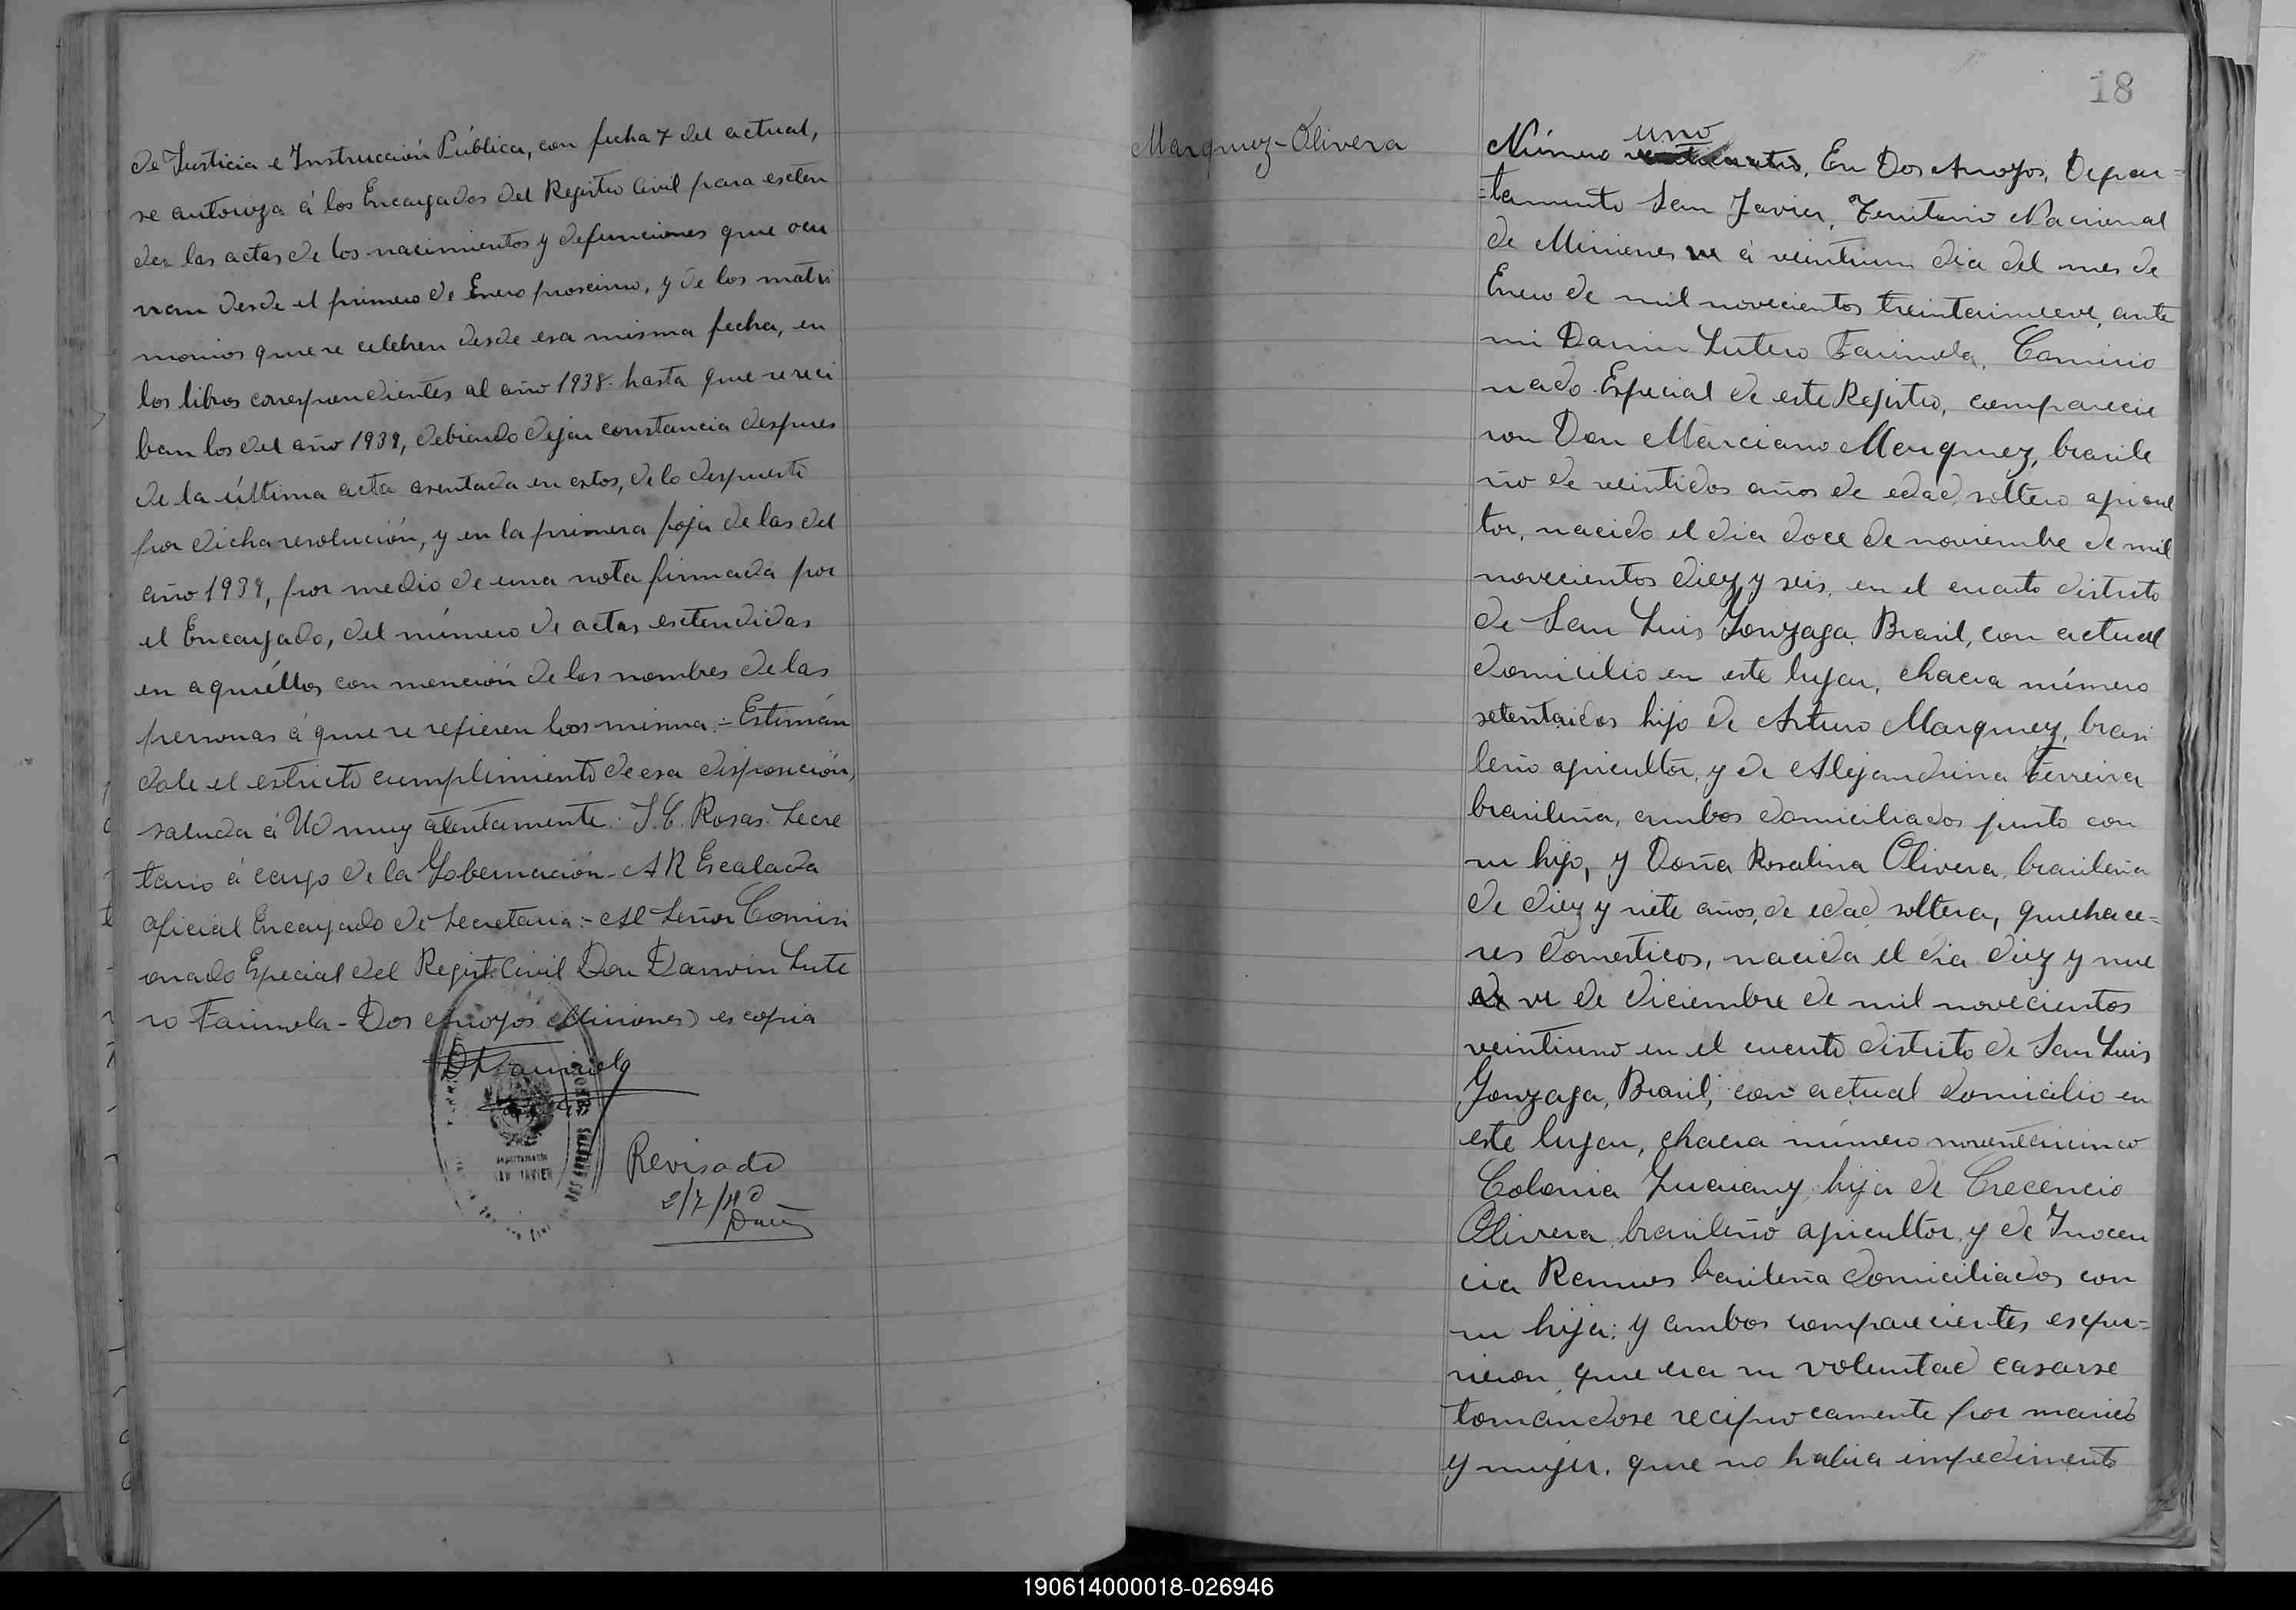 de Justicia e Instrucción Pública, con fecha 7 del actual,
se autoriza á los Encargados del Registro Civil para exten
der las actas de los nacimientos y defunciones que ocu
rran desde el primero de Enero proximo, y de los matri
monios que se celebren desde esa misma fecha, en
los libros correspondientes al año 1938. hasta que reci
ban los del año 1939, debiendo dejar constancia despues
de la última acta asentada en estos, de lo dispuesto
por dicha resolución, y en la primera foja de las del
año 1939, por medio de una nota firmada por
el Encargado, del número de actas extendidas
en aquéllos, con mención de los nombres de las
personas á que se refieren las misma:- Estimán
dole el estricto cumplimiento de esa disposición,
saluda á Ud muy atentamente. J. C. Rosas. Secre
tario á cargo de la Gobernación - A R Escalada
Oficial Encargado de Secretaria:- Al Señor Comisi
onado Especial del Regist. Civil Don Darwin Lute
ro Farinola - Dos Arroyos (Misiones) es copia
departamento
SAN JAVIER
Revisado
2/7/40
18
Marquez-Olivera
uno
Número En Dos Arroyos, Depar=
=tamento San Javier, Territorio Nacional
de Misiones á veintiun dia del mes de
Enero de mil novecientos treintainueve, ante
mi Darwin Lutero Farinola, Comisio
nado Especial de este Registro, comparecie
ron Don Marciano Marquez, brasile
ño de veintidos años de edad, soltero agricul
tor, nacido el dia doce de noviembre de mil
novecientos diez y seis, en el cuarto distrito
de San Luis Gonzaga, Brasil, con actual
domicilio en este lugar, chacra número
setentaidos hijo de Arturo Marquez, brasi
leño agricultor, y de Alejandrina Ferreira
brasileña, ambos domiciliados junto con
su hijo, y Doña Rosalina Olivera, brasileña
de diez y siete años, de edad soltera, quehace=
res domesticos, nacida el dia diez y nue
ve de diciembre de mil novecientos
veintiuno en el cuarto distrito de San Luis
Gonzaga, Brasil, con actual domicilio en
este lugar, chacra número noventaicinco
Colonia hija de Crecencio
Olivera, brasileño agricultor, y de Inocen
cia Ramos brasileña domiciliados con
su hija: y ambos comparecientes expu=
sieron que era su voluntad casarse
tomandose reciprocamente por marido
y mujer. que no habia impedimento
190614000018-026946